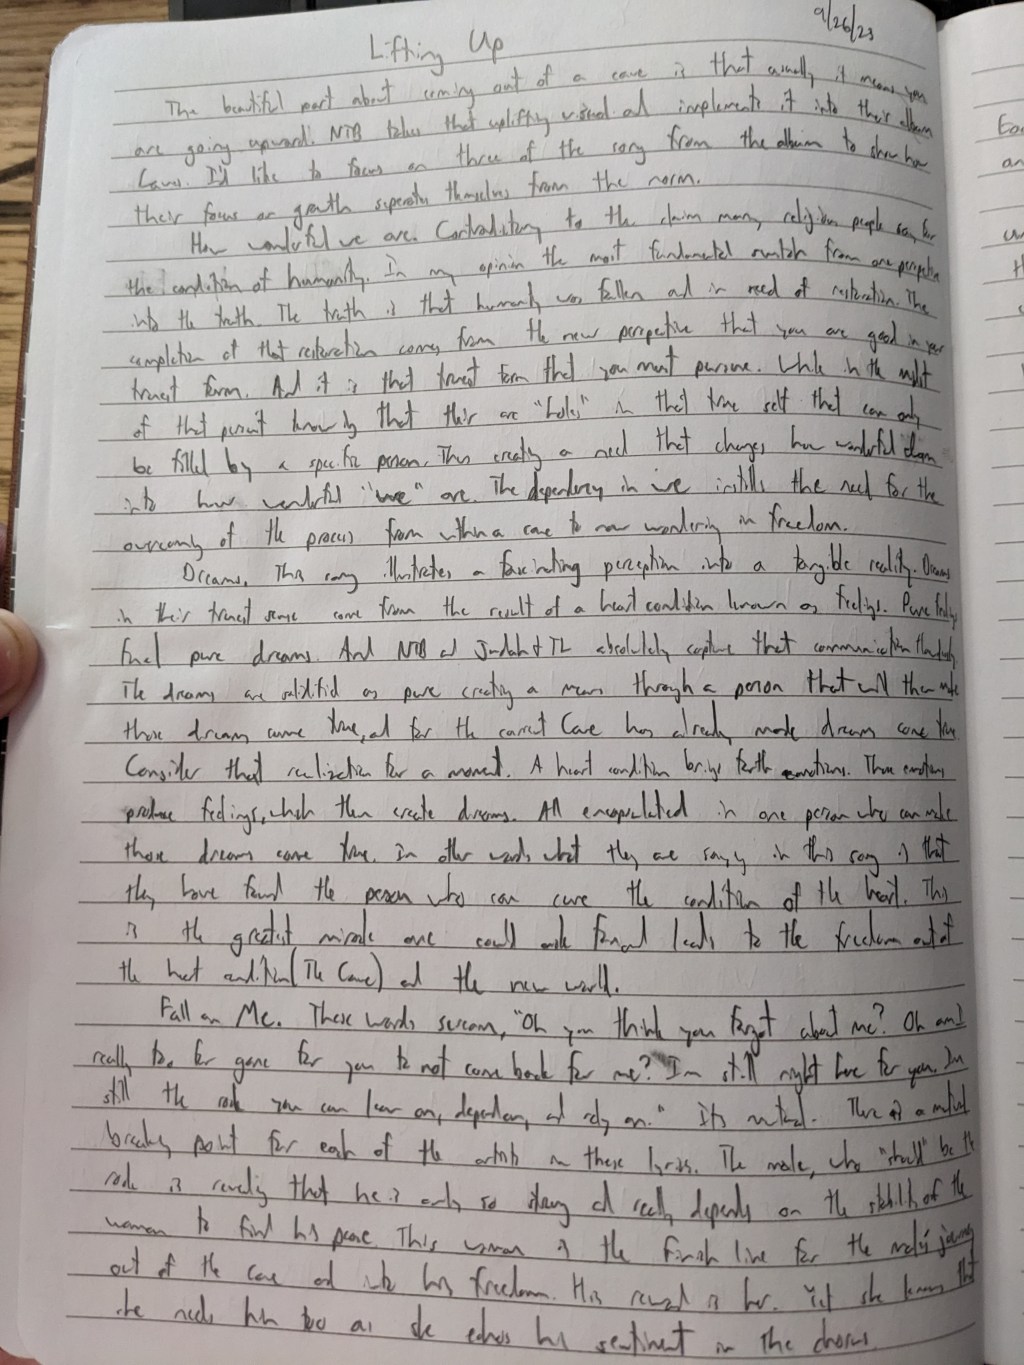 9/26/23
Lifting Up
The beautiful part about coming out of a cave is that usually it means you
are going upward. NTB takes that uplifting visual and implements it into their album
Caves. I'd like to focus on three of the song from the album to show how
their focus on growth seperates themselves from the norm.
How wonderful we are. Contradictory to the claim many religious people say for
the condition of humanity. In my opinion the most fundamental switch from one perspective
into the truth. The truth is that humanity was fallen and in need of restoration. The
completion of that restoration comes from the new perspective that you are good in your
truest form. And it is that truest form that you must pursue. While in the midst
of that pursuit knowing that their are "holes" in that true self that can only
be filled by a specific person. Thus creating a need that changes how wonderful
into how wonderful "we" are. The dependency in we instills the need for the
overcoming of the process from within a cave to now wondering in freedom.
Dreams, This song illustrates a fascinating perception into a tangible reality. Dreams
in their truest sense come from the result of a heart condition known as feelings. Pure feelings
fuel pure dreams. And NTB and Judah & The absolutely capture that communication
The dreams are as pure creating a means through a person that will then make
those dreams come true, and for the current Cave has already made dream come true
Consider that realization for a moment. A heart condition brings forth emotions. Those emotions
produce feelings, which then create dreams. All encapsulated in one person who can make
those dreams come true. In other words what they are saying in this song is that
they have found the person who can cure the condition of the heart. This
is the greatest miracle one could ask for and leads to the freedom out of
the heart condition (The Cave) and the new world.
Fall on Me. These words scream, "Oh you think you forgot about me? Oh am I
really too far gone for you to not come back for me? I'm still right here for you. I'm
still the rock you can lean on, depend on, and rely on." Its mutual. There is a mutual
breaking point for each of the artists in these lyrics. The male, who "should" be the
rock is revealing that he is only so strong and really depends on the stability of the
woman to find his peace. This woman is the finish line for the male's journey
out of the cave and into his freedom. His reward is her. Yet she knows that
she needs him too as she echoes his sentiment in the chorus.